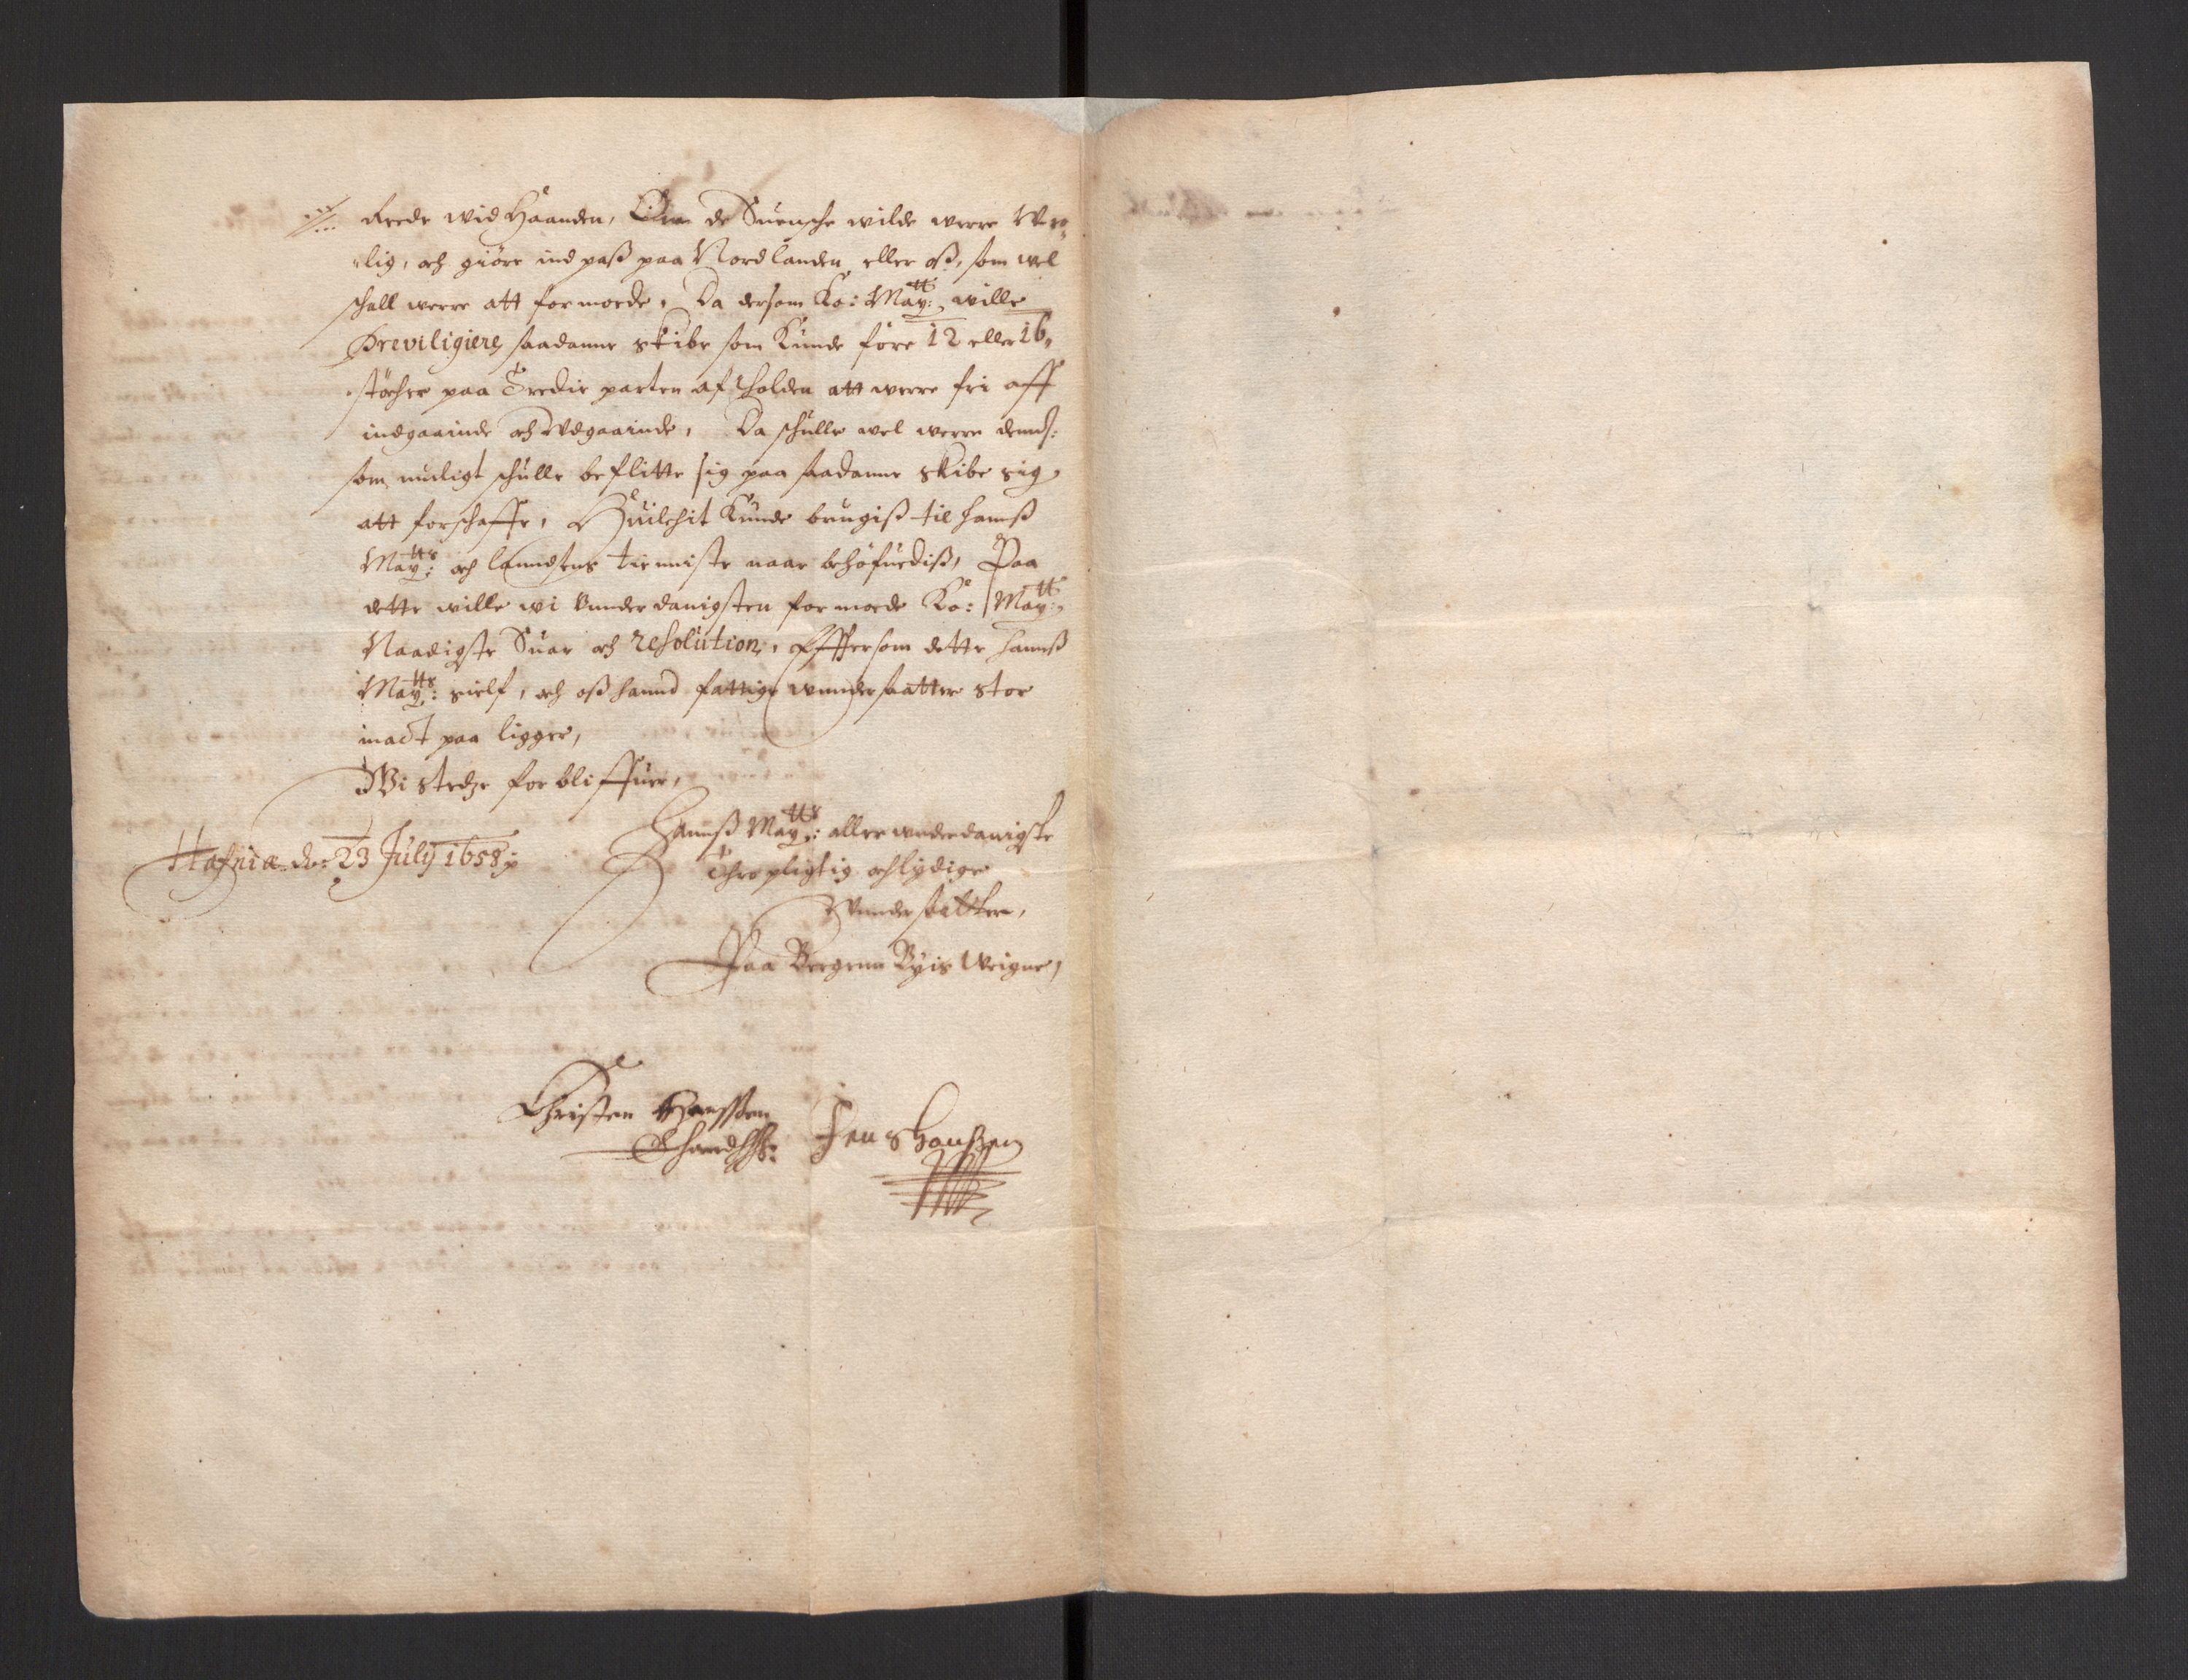 Rede wid Haanden, Om de Suensche wilde werre Wro¬
lig, och giöre ind paß paa Nordlanden eller oß, som wel
schall werre att formoede, Da dersom Ko: Maytt: wille
Previligiere saadanne skibe som Kunde före 12 eller 16,
stöcher paa Tredie parten af tholden att werre fri aff
indgaainde och Wdgaainde, Da schulle wel werre dend:
som muligt schulle beflitte sig paa saadanne skibe sig
att forschaffe, Huilchit Kunde brugiß til hanß
Maytts: och landsens tienniste naar behöfuediß, Paa
dette wille wi Vnderdanigsten formoede Ko: Maytt:
Naadigste Suar och resolution, Effttersom dette hanß
Maytts: sielf, och oß hannd fattige wundersaatter stor
mact paa ligger,
Wi stedze forbliffuer,
Hanß Maytts: aller wnderdanigste
Hafniæ den 23 July 1658
Thropligtig och lydige
Vndersaatter,
Paa Bergenn Byis Weigne,
Christen Hanssen
Jens Hanßen